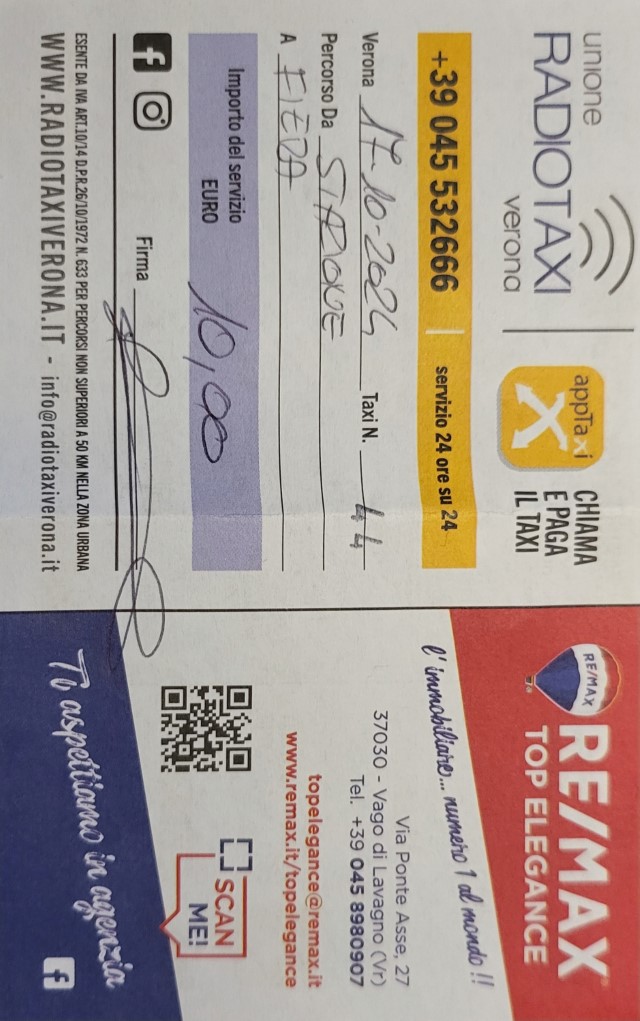 unione
RADIOTAXI
verona
appTaxi
CHIAMA
E PAGA
IL TAXI
+39 045 532666
servizio 24 ore su 24
Verona 17-10-2024 Taxi N. 44
Percorso Da STAZIONE
A FIERA
Importo del servizio
EURO 10,00
Firma
ESENTE DA IVA ART.10/14 D.P.R.26/10/1972 N. 633 PER PERCORSI NON SUPERIORI A 50 KM NELLA ZONA URBANA
WWW.RADIOTAXIVERONA.IT - info@radiotaxiverona.it
RE/MAX
RE/MAX
TOP ELEGANCE
l'immobiliare... numero 1 al mondo !!
Via Ponte Asse, 27
37030 - Vago di Lavagno (Vr)
Tel. +39 045 8980907
topelegance@remax.it
www.remax.it/topelegance
SCAN
ME!
Ti aspettiamo in agenzia